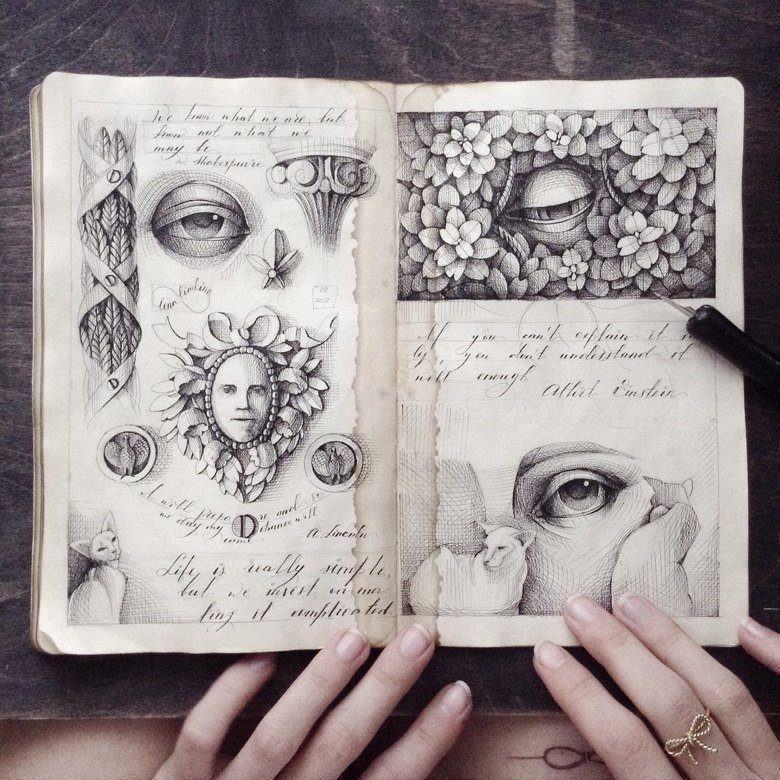 We know what we are, but
know not what we
may be
Shakespeare
limbing
07
2017
I will prepare and so
me day my chance will
come
A. Lincoln
Life is really simple,
but we insist on ma
king it complicated
If you can't explain it
ly, you don't understand it
well enough
Albert Einstein